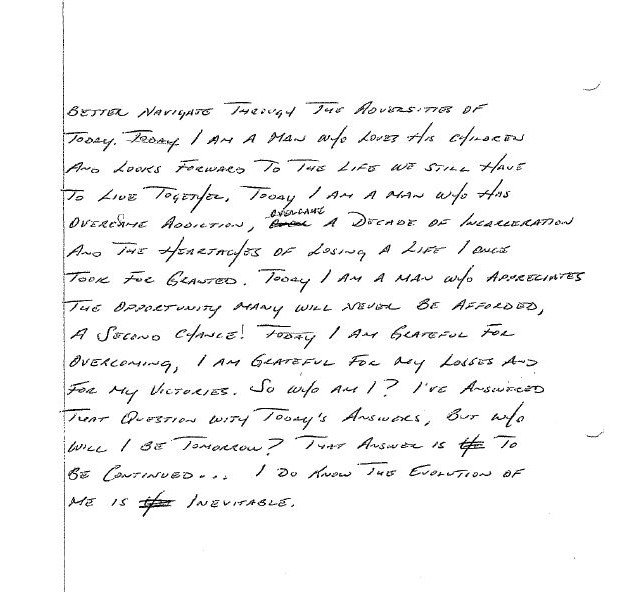 BETTER NAVIGATE THROUGH THE ADVERSITIES OF
TODAY. TODAY I AM A MAN WHO LOVES HIS CHILDREN
AND LOOKS FORWARD TO THE LIFE WE STILL HAVE
TO LIVE TOGETHER. TODAY I AM A MAN WHO HAS
OVERCAME
OVERCAME ADDICTION, A DECADE OF INCARCERATION
AND THE HEARTACHES OF LOSING A LIFE I ONCE
TOOK FOR GRANTED. TODAY I AM A MAN WHO APPRECIATES
THE OPPORTUNITY MANY WILL NEVER BE AFFORDED,
A SECOND CHANCE! TODAY I AM GRATEFUL FOR
OVERCOMING, I AM GRATEFUL FOR MY LOSSES AND
FOR MY VICTORIES. SO WHO AM I? I'VE ANSWERED
THAT QUESTION WITH TODAY'S ANSWERS, BUT WHO
WILL I BE TOMORROW? THAT ANSWER IS TO
BE CONTINUED... I DO KNOW THE EVOLUTION OF
ME IS INEVITABLE.